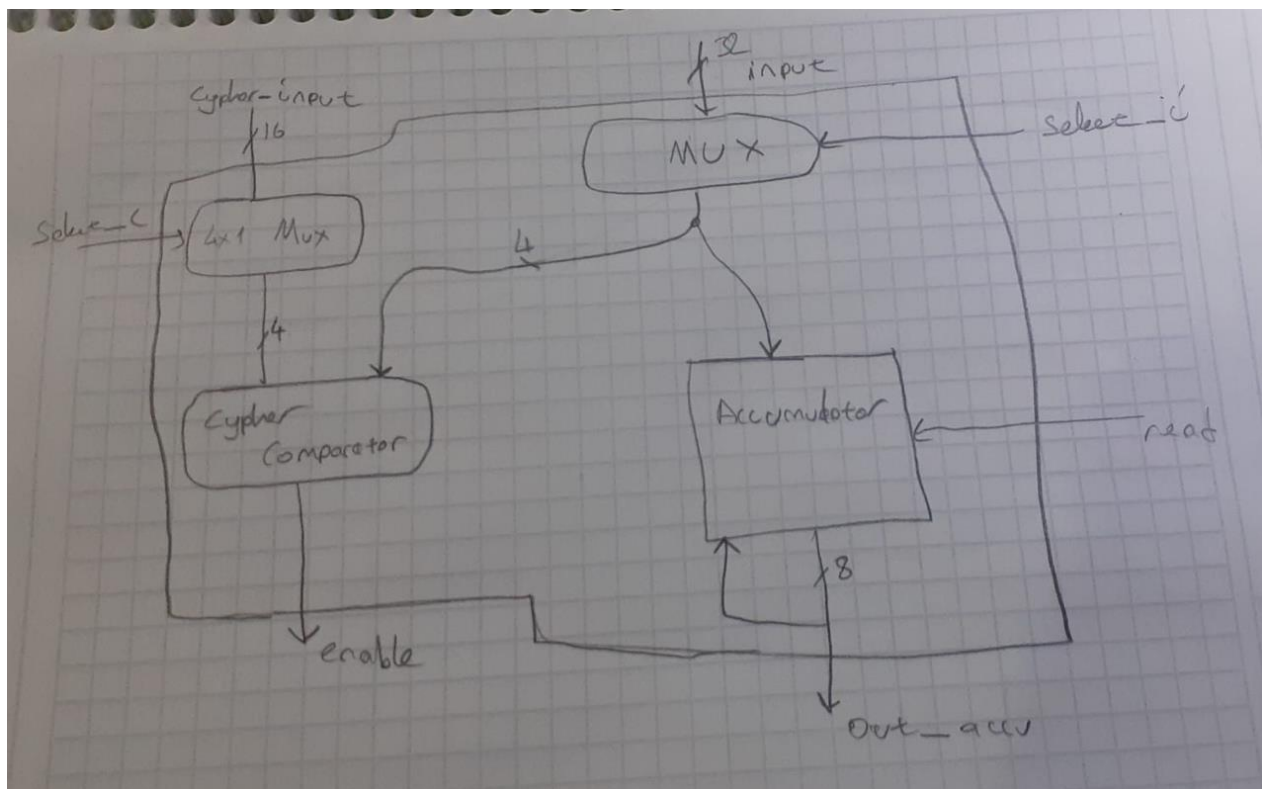 32
input
Cypher_input
16
MUX
Select_i
Select_c
4x1 Mux
4
4
Cypher
Comparator
Accumulator
read
8
enable
Out_accu